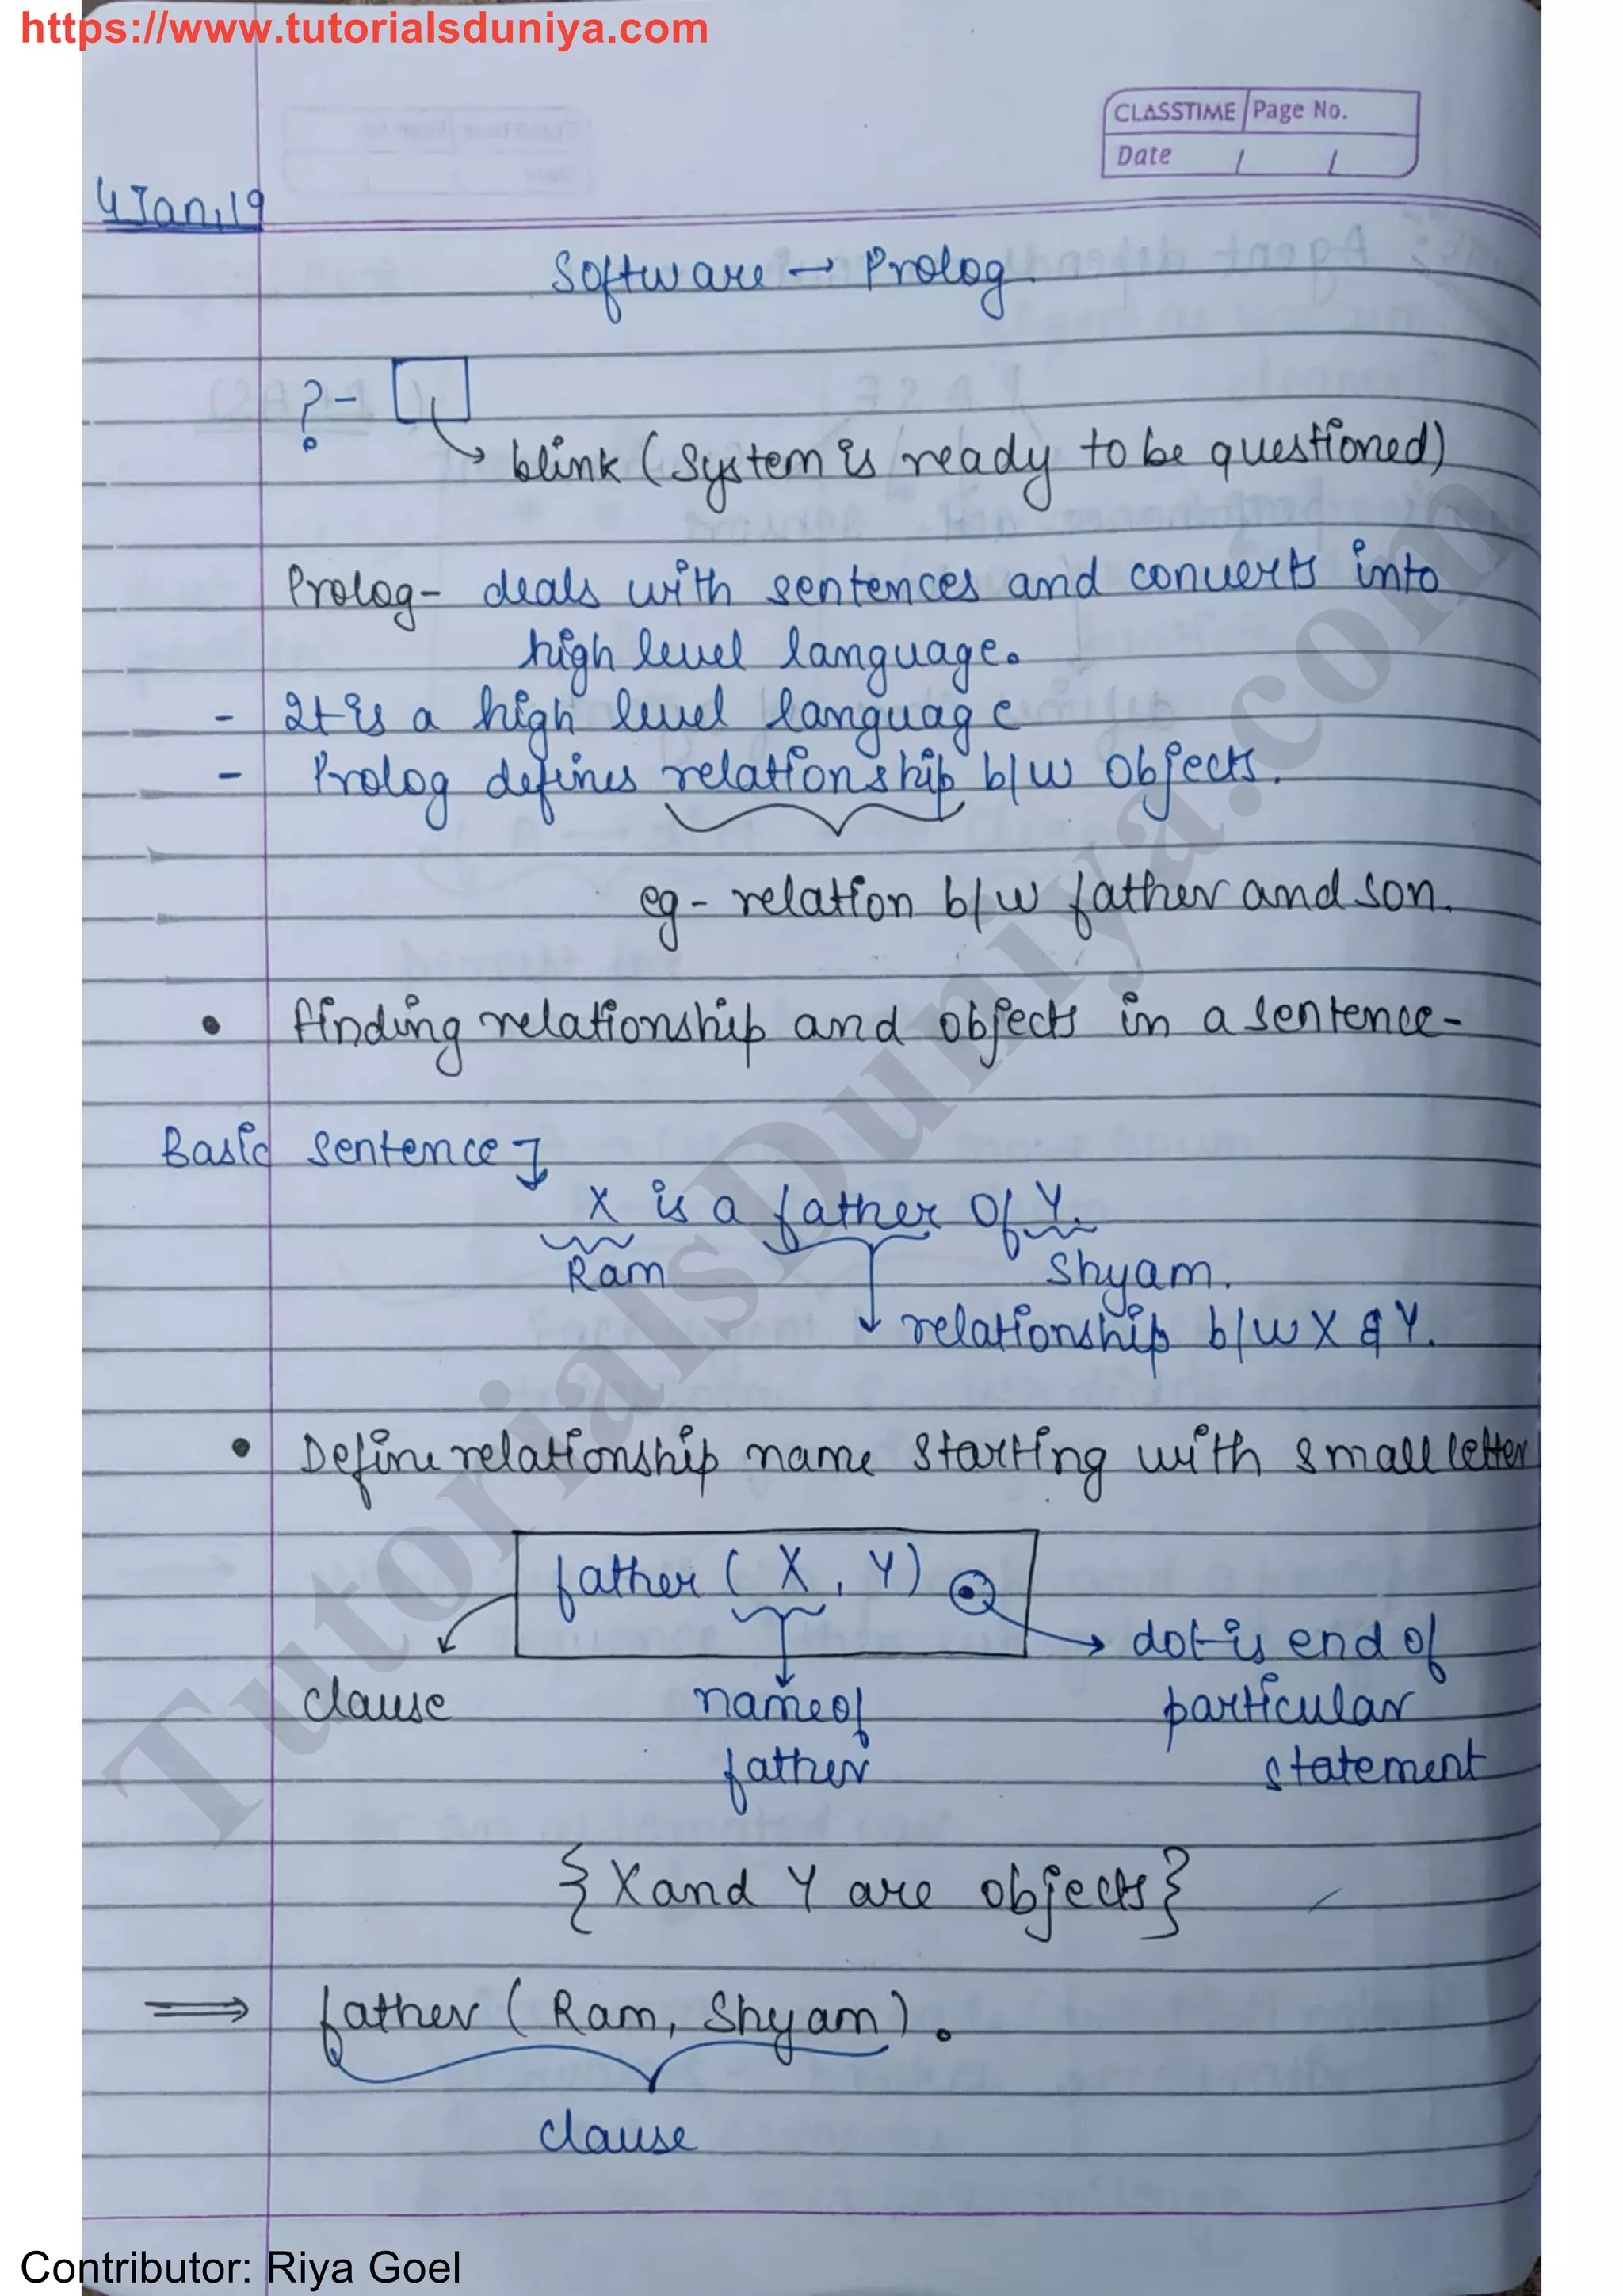 https://www.tutorialsduniya.com
CLASSTIME Page No.
Date / /
4 Jan, 19
Software → Prolog
?-
blink (System is ready to be questioned)
Prolog - deals with sentences and converts into
high level language.
- It is a high level language
- Prolog defines relationship b/w objects.
eg - relation b/w father and son.
• finding relationship and objects in a sentence -
Basic sentence
X is a father of Y.
Ram Shyam.
relationship b/w X & Y.
• Define relationship name starting with small letter
father ( X , Y ) .
dot is end of
clause name of particular
father statement
{ X and Y are objects }
⇒ father ( Ram, Shyam ) .
clause
TutorialsDuniya.com
Contributor: Riya Goel